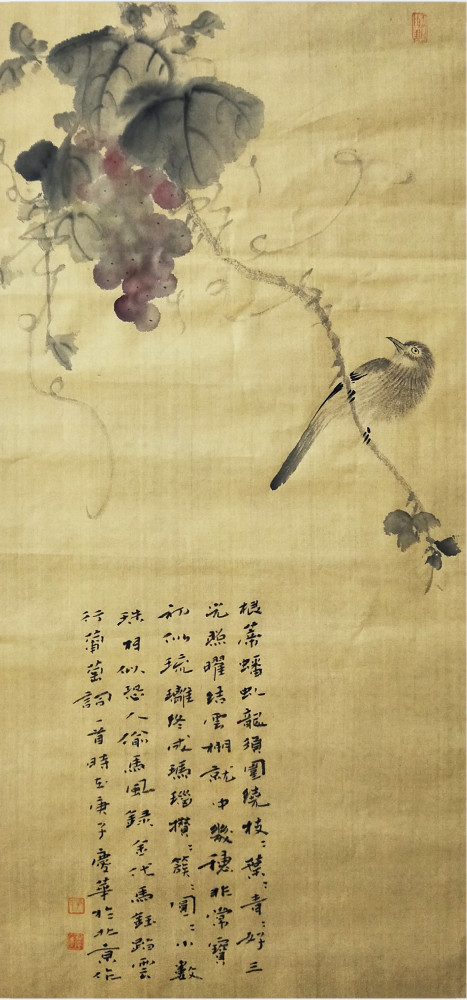 根蒂蟠虬龍須圍繞枝〻葉〻青〻好三
光照曜結雲棚就中幾穗非常寶
初似琉璃終成瑪瑙攢〻簇〻圓〻小數
珠相似恐人偷馬風録金代馬鈺踏雲
行葡萄詞一首時在庚子慶華於北京作